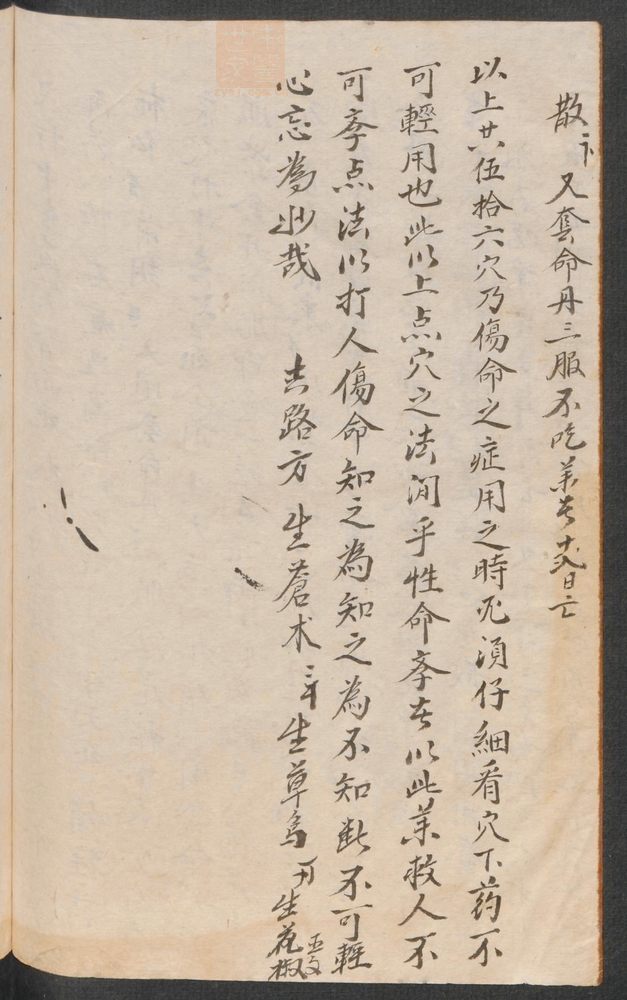 散卜又套命丹三服不吃美者十弍日亡
以上廿伍拾六穴乃傷命之症用之時況須仔細看穴下药不
可輕用也此以上点穴之法関乎性命孝者以此業救人不
可孝点法以打人傷命知之為知之為不知断不可輕
心忘為妙哉　吉路方　生蒼术　生草烏　生花椒